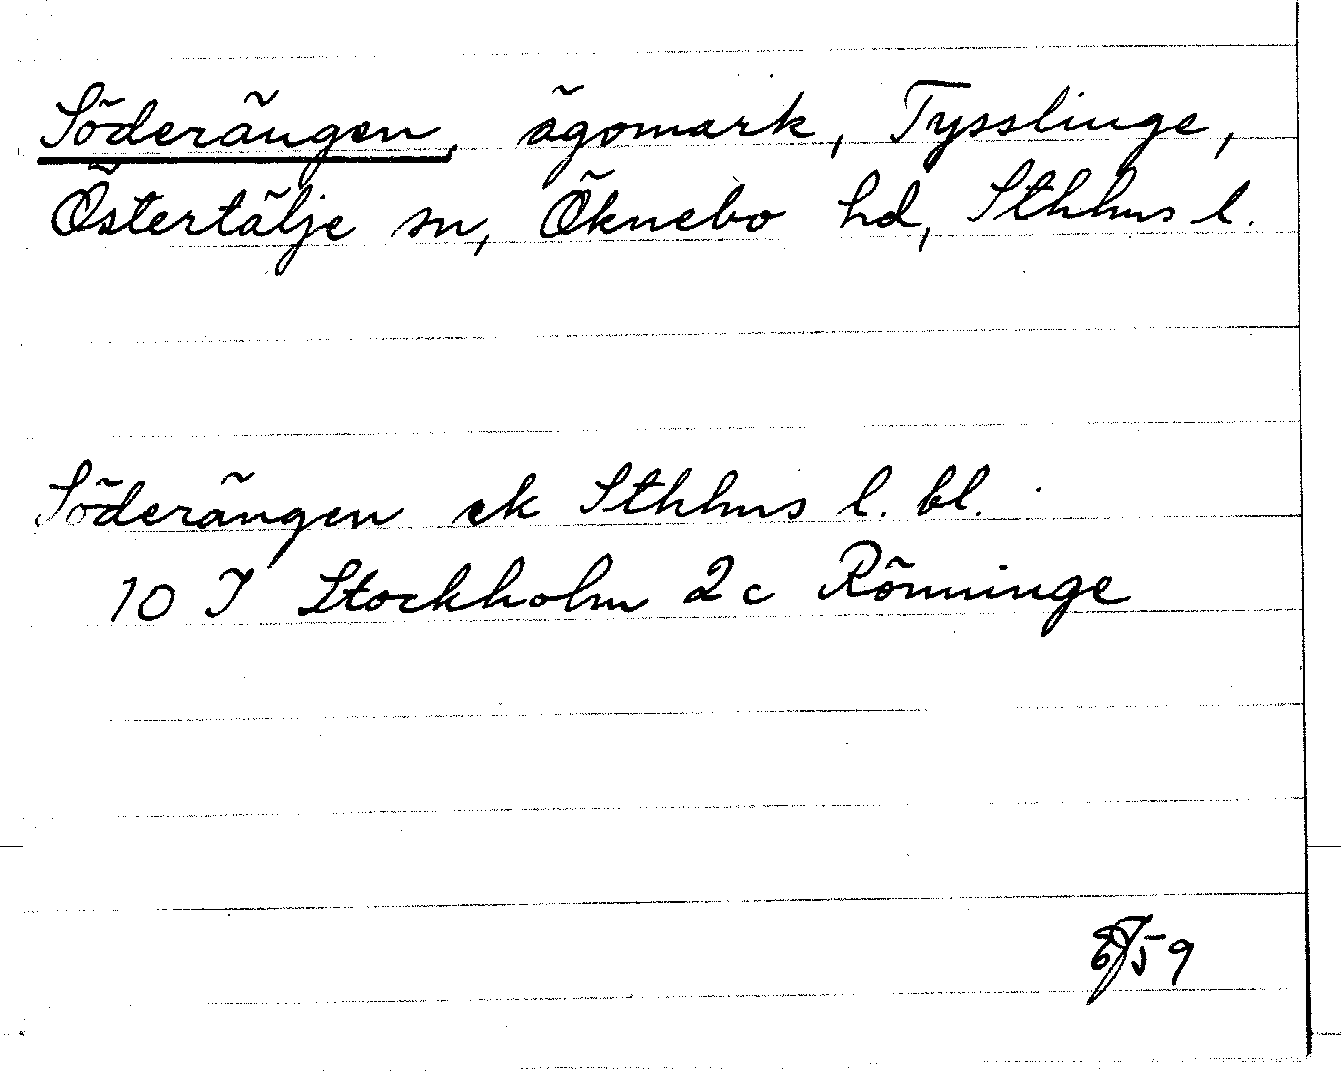 Söderängen, ägomark, Tysslinge,
Östertälje sn, Öknebo hd, Sthlms l.
Söderängen ek Sthlms l. bl.
10 I Stockholm 2 c Rönninge
59